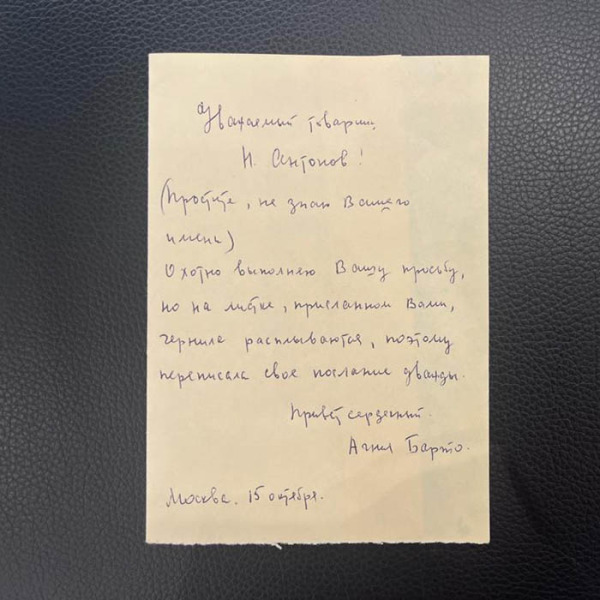 Уважаемый товарищ
Н. Антонов!
(Простите, не знаю Вашего
имени)
Охотно выполняю Вашу просьбу,
но на листке, присланном Вами,
чернила расплываются, поэтому
переписала свое послание дважды.
Привет сердечный.
Агния Барто.
Москва. 15 октября.